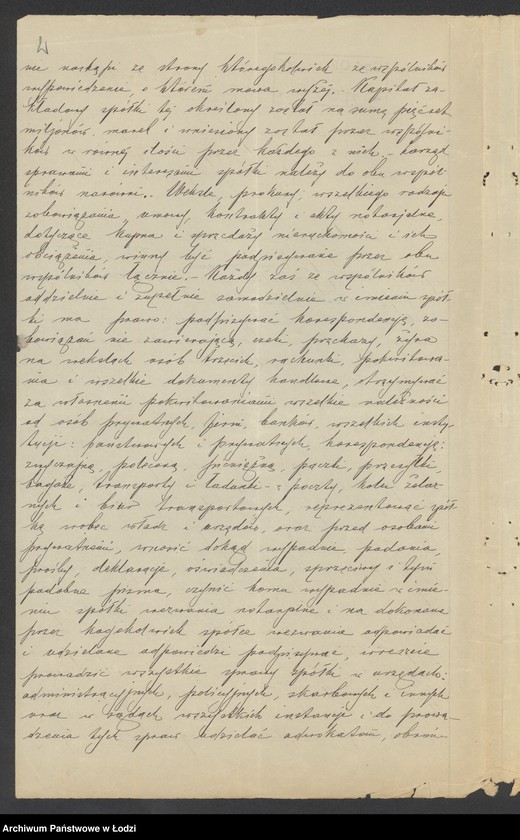 nie nastąpi ze strony któregokolwiek ze wspólników
wypowiedzenie, o którem mowa wyżej. Kapitał za-
kładowy spółki tej określony został na sumę pięćset
miljonów marek i wniesiony został przez wspólni-
ków w równej ilości przez każdego z nich. – Zarząd
sprawami i interesami spółki należy do obu wspól-
ników narówni. Weksle, prokury, wszelkiego rodzaju
zobowiązania, umowy, kontrakty i akty notarjalne,
dotyczące kupna i sprzedaży nieruchomości i ich
obciążenia, winny być podpisywane przez obu
wspólników łącznie. – Każdy zaś ze wspólników
oddzielnie i zupełnie samodzielnie w imieniu spół-
ki ma prawo: podpisywać korespondencję, zo-
bowiązań nie zawierającą, czeki, przekazy, żyra
na wekslach osób trzecich, rachunki, pokwitowa-
nia i wszelkie dokumenty handlowe, otrzymywać
za własnem pokwitowaniem wszelkie należności
od osób prywatnych, firm, banków, wszelkich insty-
tucji: państwowych i prywatnych, korespondencję:
zwyczajną, poleconą, pieniężną, paczki, przesyłki,
bagaże, transporty i ładunki z poczty, kolei żelaz-
nych i biur transportowych, reprezentować spół-
kę wobec władz i urzędów, oraz przed osobami
prywatnemi, wnosić dokąd wypadnie, podania,
prośby, deklaracje, oświadczenia, sprzeciwy i tym
podobne pisma, czynić komu wypadnie w imie-
niu spółki wezwania notarjalne i na dokonane
przez kogokolwiek spółce wezwania odpowiadać
i udzielone odpowiedzi podpisywać, wreszcie
prowadzić wszystkie sprawy spółki w urzędach:
administracyjnych, policyjnych, skarbowych i innych
oraz w sądach wszystkich instancji i do prowa-
dzenia tych spraw udzielać adwokatom, obroń-
Archiwum Państwowe w Łodzi